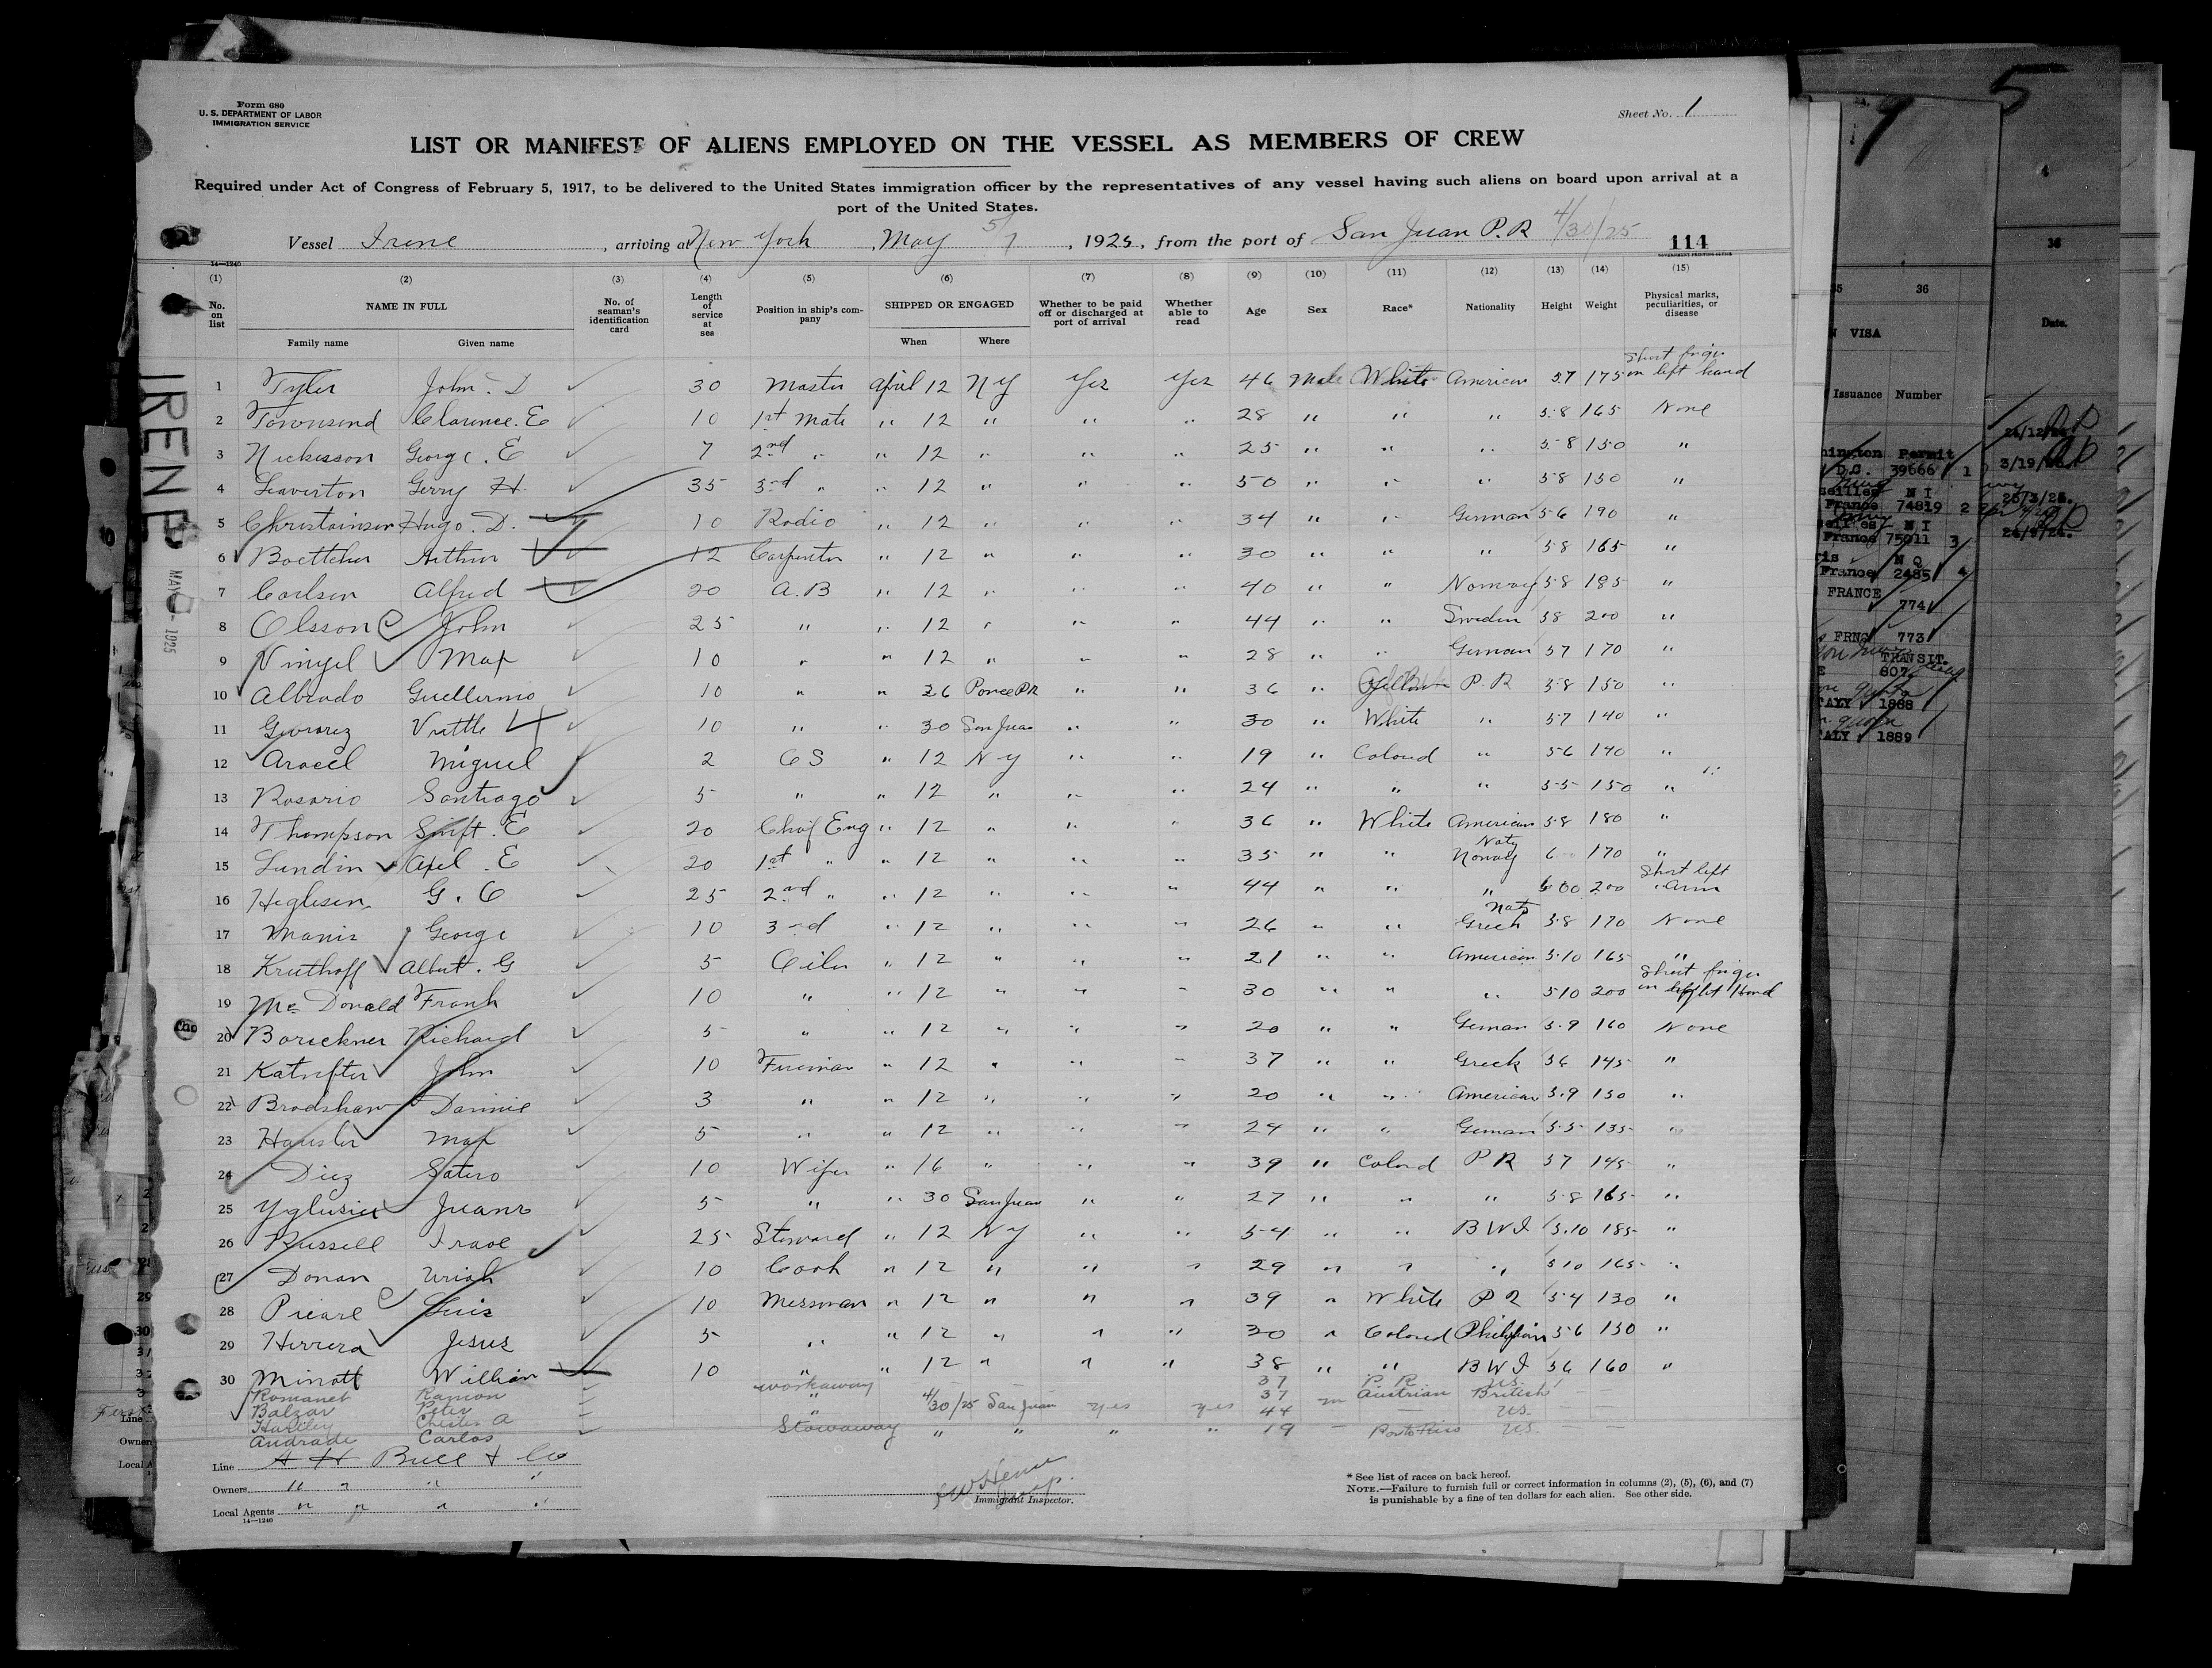 Form 680
U. S. DEPARTMENT OF LABOR
IMMIGRATION SERVICE
Sheet No. 1
LIST OR MANIFEST OF ALIENS EMPLOYED ON THE VESSEL AS MEMBERS OF CREW
Required under Act of Congress of February 5, 1917, to be delivered to the United States immigration officer by the representatives of any vessel having such aliens on board upon arrival at a
port of the United States.
Vessel Irene, arriving at New York, May 5/7, 1925, from the port of San Juan P.R 4/30/25
114
14—1240
(1) (2) (3) (4) (5) (6) (7) (8) (9) (10) (11) (12) (13) (14) (15)
No. on list NAME IN FULL No. of seaman's identification card Length of service at sea Position in ship's company SHIPPED OR ENGAGED Whether to be paid off or discharged at port of arrival Whether able to read Age Sex Race* Nationality Height Weight Physical marks, peculiarities, or disease
Family name Given name When Where
1 Tyler John. D 30 Master April 12 N Y Yes Yes 46 Male White American 5.7 175 Short finger on left hand
2 Townsend Clarence. E 10 1st Mate " 12 " " " 28 " " " 5.8 165 None
3 Nickisson George. E 7 2nd " " 12 " " " 25 " " " 5-8 150 "
4 Leaverton Gerry H. 35 3rd " " 12 " " " 50 " " " 58 150 "
5 Christainson Hugo. D. 10 Radio " 12 " " " 34 " " German 56 190 "
6 Boettcher Arthur 12 Carpenter " 12 " " " 30 " " " 58 165 "
7 Carlsen Alfred 20 A.B " 12 " " " 40 " " Norway 58 185 "
8 Olsson John 25 " " 12 " " " 44 " " Sweden 58 200 "
9 Max 10 " " 12 " " " 28 " " German 57 170 "
10 Albrado Guellermo 10 " " 26 Ponce PR " " 36 " P. R 58 150 "
11 10 " " 30 San Juan " " 30 " White " 57 140 "
12 Aracel Miguel 2 O S " 12 N Y " " 19 " Colored " 56 140 "
13 Rosario Santiago 5 " " 12 " " " 24 " " " 55 150 "
14 Thompson Swift. E 20 Chief Eng " 12 " " " 36 " White American 58 180 "
15 Lundin Axel. E 20 1st " " 12 " " " 35 " " Naty Norway 6 170 "
16 Heglesen G. C 25 2nd " " 12 " " " 44 " " " 6 00 200 Short left arm
17 Manis George 10 3rd " 12 " " " 26 " " Naty Greek 5.8 170 None
18 Kruthoff Albert. G 5 Oiler " 12 " " " 21 " " American 5.10 165 "
19 Mc Donald Frank 10 " " 12 " " " 30 " " " 510 200 Short finger on Hand
20 Borickner Richard 5 " " 12 " " " 20 " " German 5.9 160 None
21 Katrifter John 10 Fireman " 12 " " " 37 " " Greek 56 145 "
22 Bradshaw Dannie 3 " " 12 " " " 20 " " American 5.9 150 "
23 Hausler Max 5 " " 12 " " " 24 " " German 5.5 135 "
24 Diez Satero 10 Wiper " 16 " " " 39 " Colord P R 57 145 "
25 Yglusier Juans 5 " " 30 San Juan " " 27 " " " 5.8 165 "
26 Russell 25 Steward " 12 N Y " " 54 " " B W I 5.10 185 "
27 Donan Uriah 10 Cook " 12 " " " 29 " " " 510 165 "
28 Luis 10 Messman " 12 " " " 39 " White P R 5.4 130 "
29 Herrera Jesus 5 " " 12 " " " 30 " Colored 56 150 "
30 Minott William 10 " " 12 " " " 38 " " B W I 56 160 "
Romanet Ramon workaway 37 P. R. U.S.
Balzar Peter " 4/30/25 San Juan yes yes 37 m Austrian British — —
Hartley Chester A " 44 — U.S.
Andrade Carlos Stowaway " " " " 19 — Porto Rico U.S. — —
Line A H Bull & Co
Owners " " " "
Local Agents " " " "
14—1240
Immigrant Inspector.
* See list of races on back hereof.
NOTE.—Failure to furnish full or correct information in columns (2), (5), (6), and (7)
is punishable by a fine of ten dollars for each alien. See other side.
IRENE
MAY 1925
5
9
36
36
VISA
Date.
Issuance Number
Permit
D.C. 39666 1
3/19/
N I
France 74819 2
N I
France 75011 3
N Q
France 2485 4
FRANCE
774
773
TRANSIT.
807
1888
1889